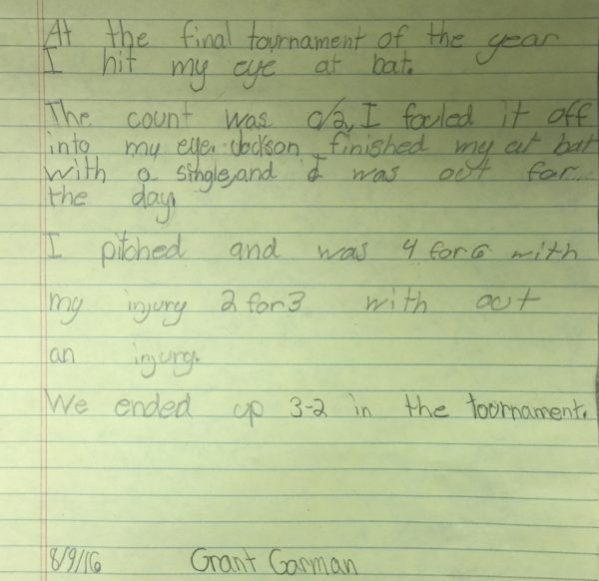 At the final tournament of the year
I hit my eye at bat.
The count was 0/2, I fouled it off
into my eye. Jackson finished my at bat
with a single, and I was out for
the day.
I pitched and was 4 for 6 with
my injury 2 for 3 with out
an injury.
We ended up 3-2 in the toornament.
8/9/16 Grant Garman